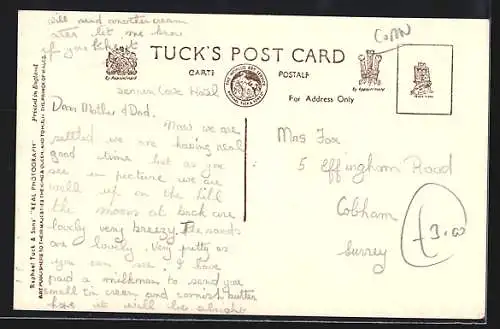 will send another cream
after let me know
if you like it
TUCK'S POST CARD
CARTE POSTALE
By Appointment
By Appointment
TRADE MARK
For Address Only
CORN
Sennen Cove Hotel
Dear Mother & Dad.
Now we are
settled we are having real
good time but as you
see in picture we are
well up on the hill
the moors at back are
lovely very breezy. The sands
are lovely. Very pretty as
you can see. I have
paid a milkman to send you
small tin cream and cornish butter
hope it will be alright
Mrs Fox
5 Effingham Road
Cobham
Surrey
£3.00
Raphael Tuck & Sons' "REAL PHOTOGRAPH" Printed in England
ART PUBLISHERS TO THEIR MAJESTIES THE KING & QUEEN, AND TO H.R.H. THE PRINCE OF WALES.